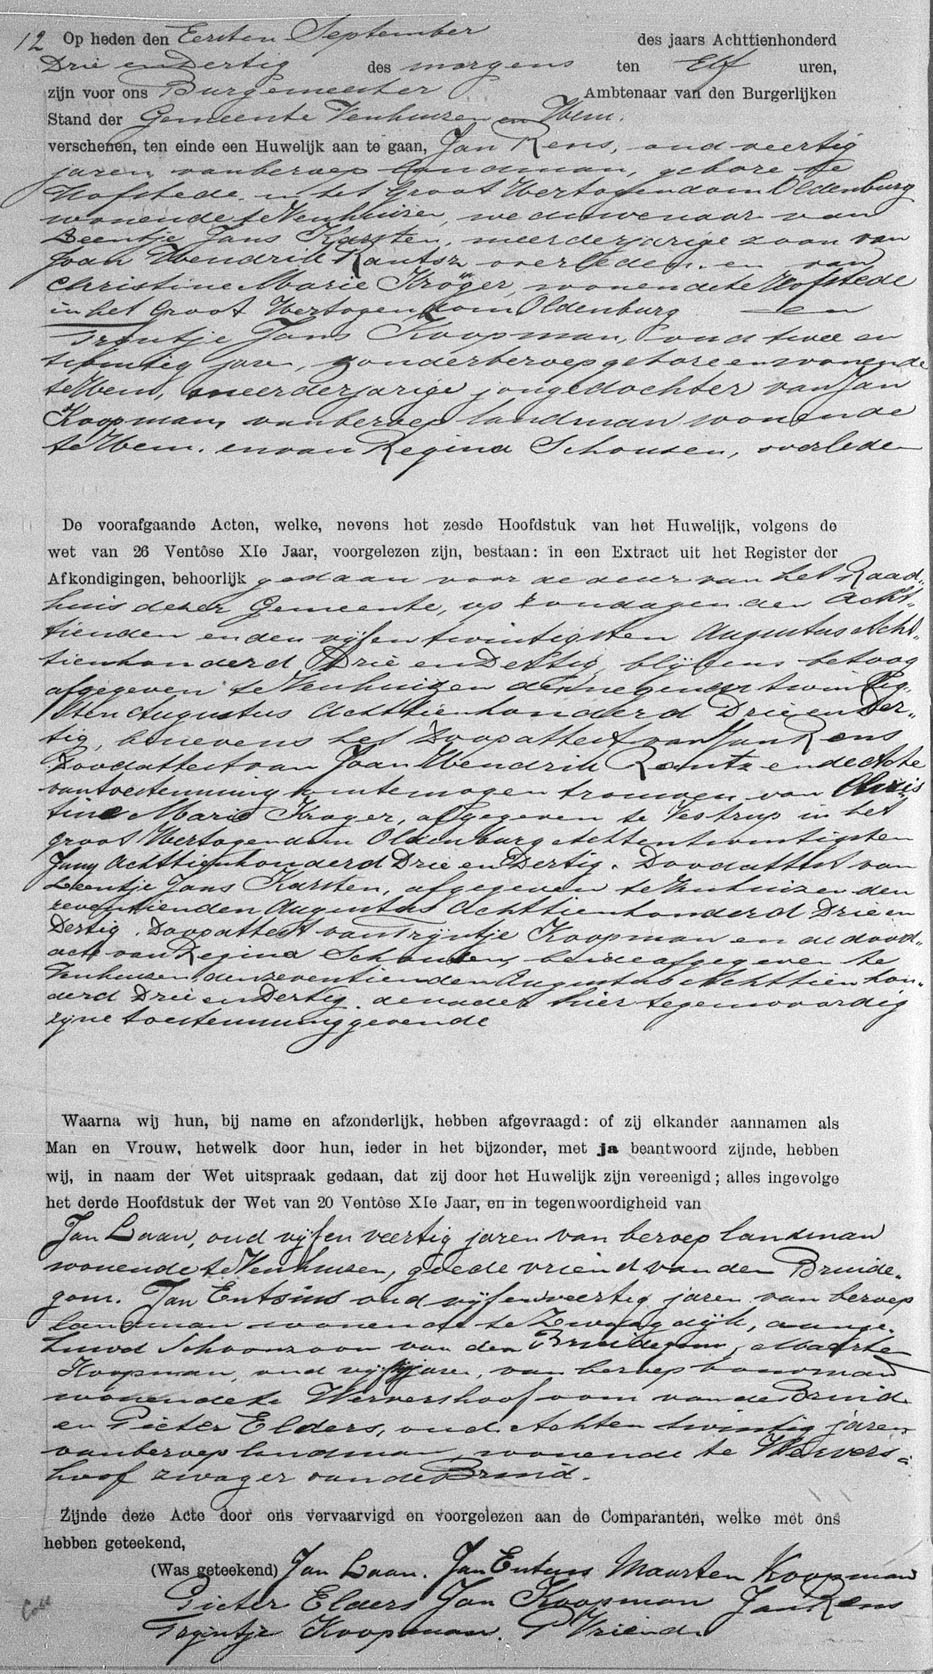 12 Op heden den Eersten September des jaars Achttienhonderd
Drie en Dertig des morgens ten Elf uren,
zijn voor ons Burgemeester Ambtenaar van den Burgerlijken
Stand der Gemeente Venhuizen en Hem.
verschenen, ten einde een Huwelijk aan te gaan, Jan Rens, oud veertig
jaren van beroep landman, gebore te
Hofstede in het Groot Hertogendom Oldenburg
wonende te Venhuizen, weduwenaar van
Leentje Jans Karsten, meerderjarige zoon van
Joan Hendrik Rantz overleden en van
Christine Marie Kröger, wonende te Hofstede
in het Groot Hertogendom Oldenburg en
Trijntje Jans Koopman, oud twee en
twintig jare, zonder beroep gebore en wonende
te Hem, meerderjarige jongedochter van Jan
Koopman, van beroep landman wonende
te Hem. en van Regina Schouten, overleden
De voorafgaande Acten, welke, nevens het zesde Hoofdstuk van het Huwelijk, volgens de
wet van 26 Ventôse XIe Jaar, voorgelezen zijn, bestaan: in een Extract uit het Register der
Afkondigingen, behoorlijk gedaan voor de deur van het Raad„
huis dezer Gemeente, op zondagen den Acht„
tienden en den vijf en twintigsten Augustus Acht„
tienhonderd Drie en Dertig, blijkens betoog
afgegeven te Venhuizen den negen en twintig„
sten Augustus Achttienhonderd Drie en Der„
tig, benevens het Doopattest van Jan Rens
Doodattest van Joan Hendrik Rantz en de Acte
van toestemming te mogen trouwen van Chris
tine Marie Kroger, afgegeven te Vestrup in het
groot Hertogendom Oldenburg Achtentwintigsten
Juny Achttienhonderd Drie en Dertig. Doodattest van
Leentje Jans Karsten, afgegeven te Venhuizen den
zeventienden Augustus Achttienhonderd Drie en
Dertig. Doopattest van Trijntje Koopman en de dood„
acte van Regina Schouten, beide afgegeven te
Venhuizen den zeventienden Augustus Achttien hon„
derd Drie en Dertig. de vader hier tegenwoordig
zijne toestemming gevende
Waarna wij hun, bij name en afzonderlijk, hebben afgevraagd: of zij elkander aannamen als
Man en Vrouw, hetwelk door hun, ieder in het bijzonder, met ja beantwoord zijnde, hebben
wij, in naam der Wet uitspraak gedaan, dat zij door het Huwelijk zijn vereenigd; alles ingevolge
het derde Hoofdstuk der Wet van 20 Ventôse XIe Jaar, en in tegenwoordigheid van
Jan Laan, oud vijf en veertig jaren van beroep landman
wonende te Venhuizen, goede vriend van den Bruide„
gom. Jan Entsius oud vijf en veertig jaren van beroep
landman wonende te Zwaagdijk, aange„
huwd Schoonzoon van den Bruidegom, Maarten
Koopman, oud jaren, van beroep bouwman
wonende te Wervershoof oom van de Bruid
en Pieter Elders, oud Acht en twintig jaren
van beroep landman, wonende te Wervers„
hoof zwager van de Bruid.
Zijnde deze Acte door ons vervaarvigd en voorgelezen aan de Comparanten, welke met ons
hebben geteekend,
(Was geteekend) Jan Laan. Jan Entsius Maarten Koopman
Pieter Elders Jan Koopman Jan Rens
Trijntje Koopman. P Vriend